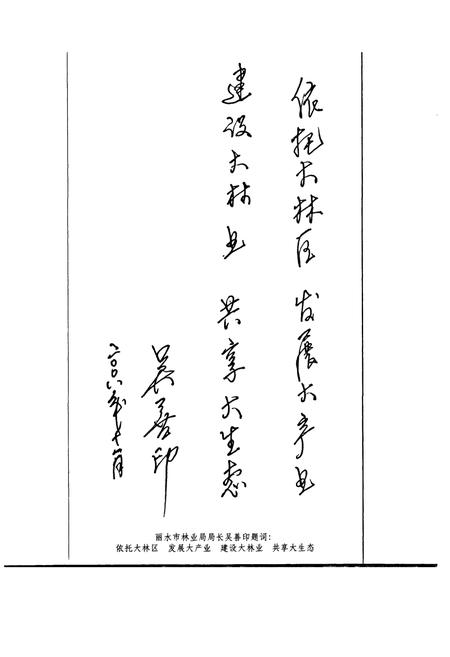 依托大林区 发展大产业
建设大林业 共享大生态
吴善印
二〇〇八年十一月
丽水市林业局局长吴善印题词:
依托大林区 发展大产业 建设大林业 共享大生态